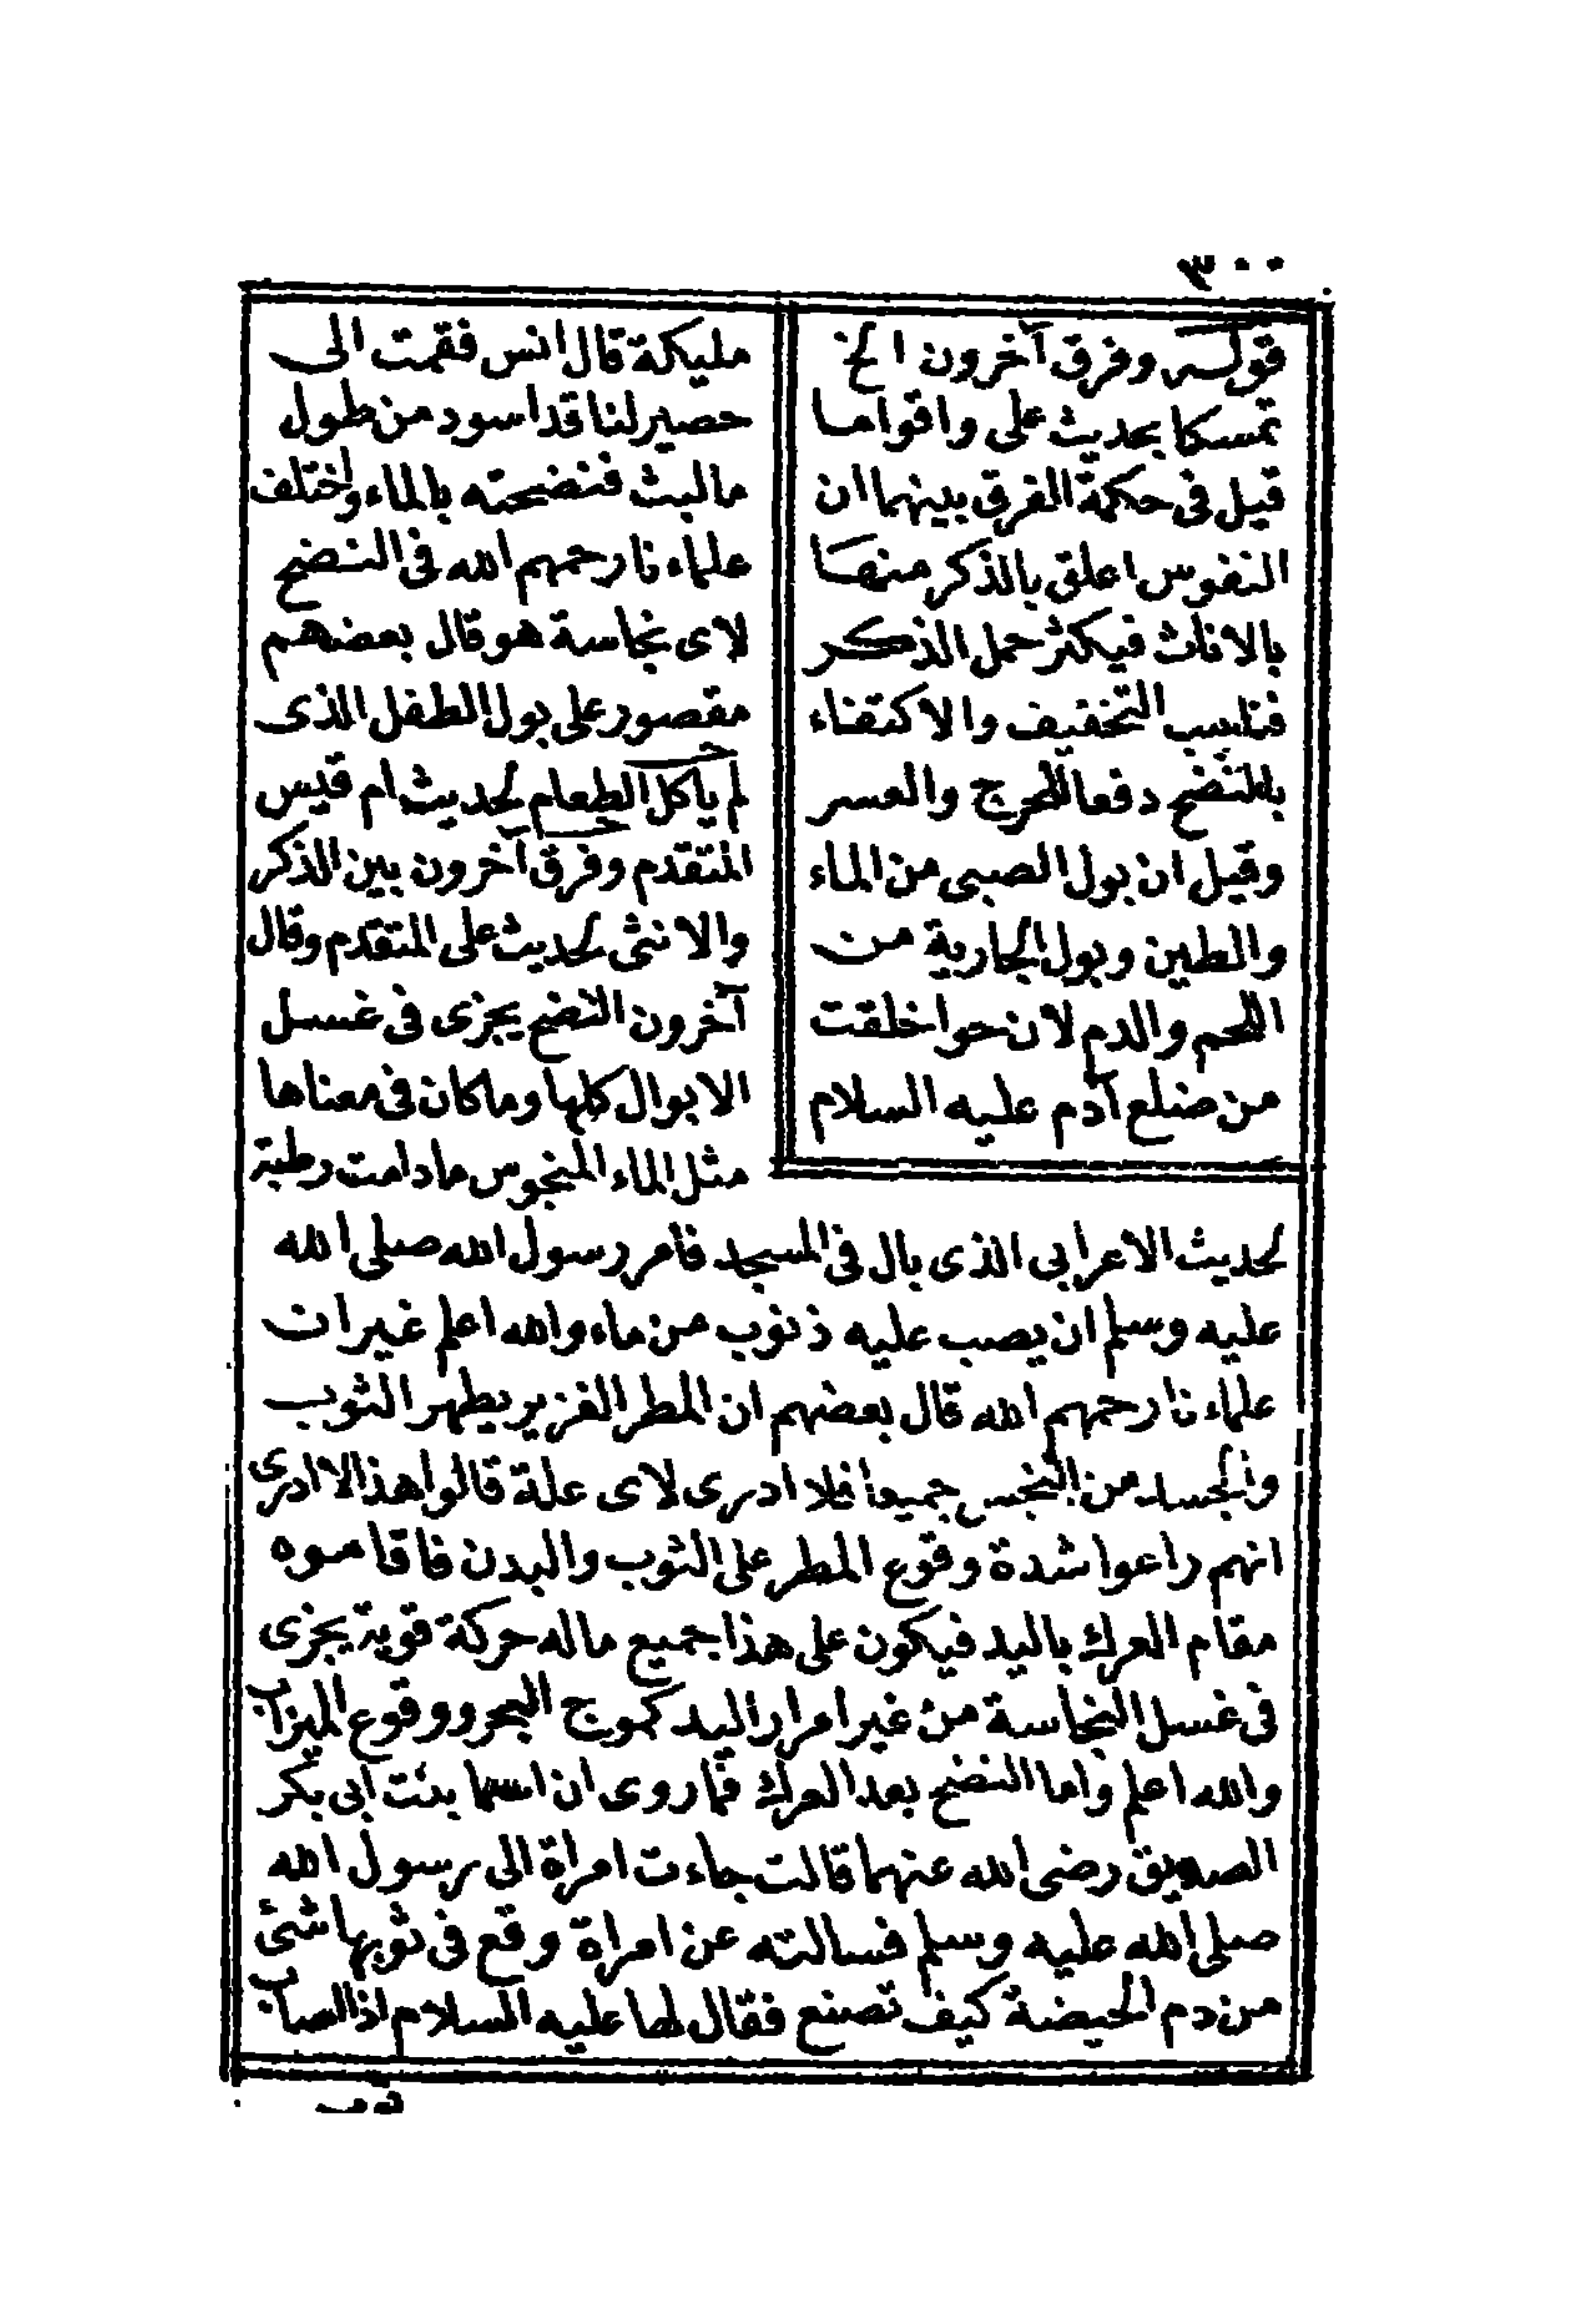 ٣٠٠
قوله وفرق آخرون الخ
تمسكا بحديث على واقواما
قيل فى حكمة الفرق بينهما ان
النفوس اعلق بالذكر منها
بالاناث فيكثر حمل الذكر
فناسب التخفيف والاكتفاء
بالنضح دفعا للحرج والعسر
وقيل ان بول الصبى من الماء
والطين وبول الجارية من
اللحم والدم لان حوا خلقت
من ضلع آدم عليه السلام
مليكة قال انس فقمت الى
حصير لنا قد اسود من طول
مالبث فنضحته بالماء واختلف
علماء نا رحمهم الله فى النضح
لاى نجاسة هو قال بعضهم
مقصور على بول الطفل الذى
لم ياكل الطعام لحديث ام قيس
المتقدم وفرق آخرون بين الذكر
والانثى لحديث على المتقدم وقال
آخرون النضح يجزى فى غسل
الابوال كلها وما كان فى معناها
مثل الماء المنجوس مادامت رطبة
لحديث الاعرابى الذى بال فى المسجد فامر رسول الله صلى الله
عليه وسلم ان يصب عليه ذنوب من ماء والله اعلم غير ان
علماء نا رحمهم الله قال بعضهم ان المطر الغزير يطهر الثوب
والجسد من النجس جميعا فلا ادرى لاى علة قالوا هذا الا ادرى
انهم راعوا شدة وقوع المطر على الثوب والبدن فاقاموه
مقام العرك باليد فيكون على هذا جميع ماله حركة قوية يجزى
فى غسل النجاسة من غير امرار اليد كموج البحر ووقوع الميزاب
والله اعلم واما النضح بعد العرك فما روى ان اسما بنت ابى بكر
الصديق رضى الله عنهما قالت جاءت امراة الى رسول الله
صلى الله عليه وسلم فسالته عن امراة وقع فى ثوبها شئ
من دم الحيضة كيف تصنع فقال لها عليه السلام اذا اصاب